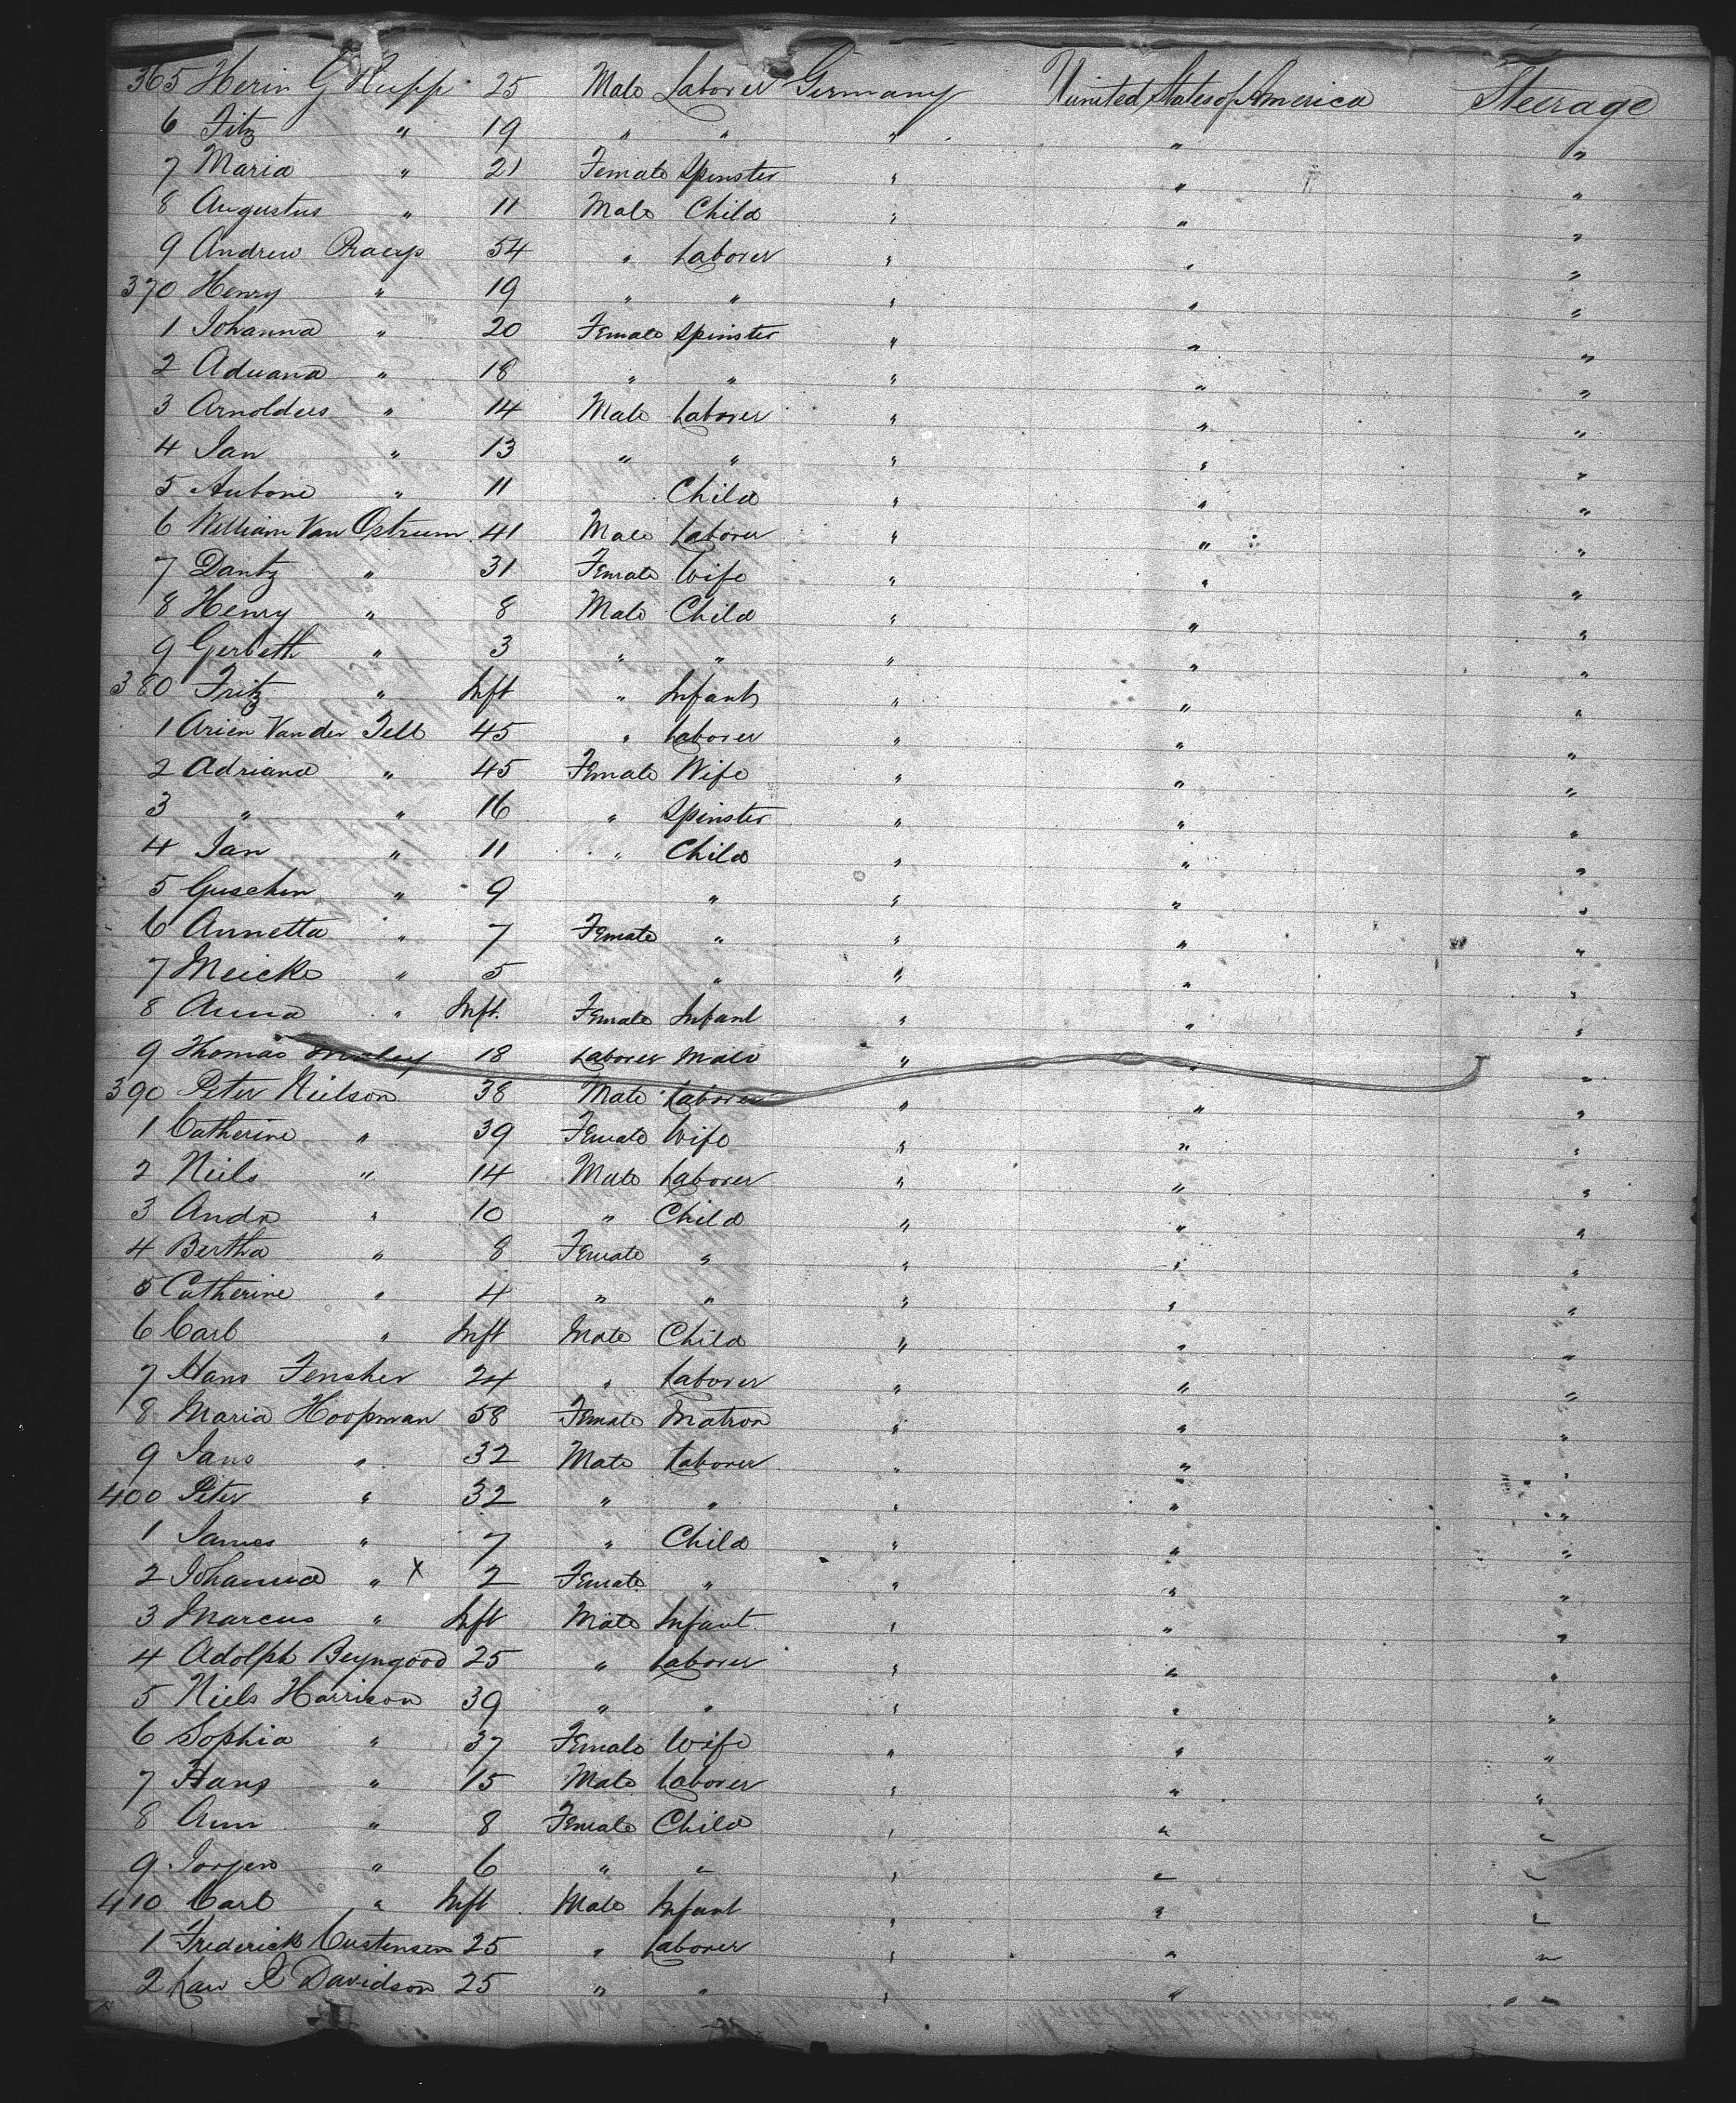 365 Herin G Rupp 25 Male Laborer Germany United States of America Steerage
6 Fitz " 19 " " " " "
7 Maria " 21 Female Spinster " " "
8 Augustus " 11 Male Child " " "
9 Andrew 54 " Laborer " " "
370 Henry " 19 " " " " "
1 Johanna " 20 Female Spinster " " "
2 Aduana " 18 " " " " "
3 Arnoldus " 14 Male Laborer " " "
4 Jan " 13 " " " " "
5 Antone " 11 Child " " "
6 William Van Ostrum 41 Male Laborer " " "
7 Dantz " 31 Female Wife " " "
8 Henry " 8 Male Child " " "
9 Gerbeth " 3 " " " " "
380 Fritz " Inft " Infant " " "
1 Arien Van der Tell 45 " Laborer " " "
2 Adriana " 45 Female Wife " " "
3 " " 16 " Spinster " " "
4 Jan " 11 " Child " " "
5 Guschen " 9 " " " "
6 Annetta " 7 Female " " " "
7 Meicke " 5 " " " "
8 Anna " Inft. Female Infant " " "
9 Thomas 18 Laborer Male " " "
390 Peter Neilson 38 Male Laborer " " "
1 Catherine " 39 Female Wife " " "
2 Niels " 14 Male Laborer " " "
3 Andr " 10 " Child " " "
4 Bertha " 8 Female " " " "
5 Catherine " 4 " " " " "
6 Carl " Inft Male Child " " "
7 Hans Fensher 24 " Laborer " " "
8 Maria Hoopman 58 Female Matron " " "
9 Jans " 32 Male Laborer " " "
400 Peter " 32 " " " " "
1 James " 7 " Child " " "
2 Johanna " X 2 Female " " " "
3 Marcus " Inft Male Infant " " "
4 Adolph Beyngood 25 " Laborer " " "
5 Niels Harrison 39 " " " " "
6 Sophia " 37 Female Wife " " "
7 Hans " 15 Male Laborer " " "
8 Ann " 8 Female Child " " "
9 Jorgen " 6 " " " " "
410 Carl " Inft Male Infant " " "
1 Frederick Custensen 25 " Laborer " " "
2 Law I Davidson 25 " " " " "